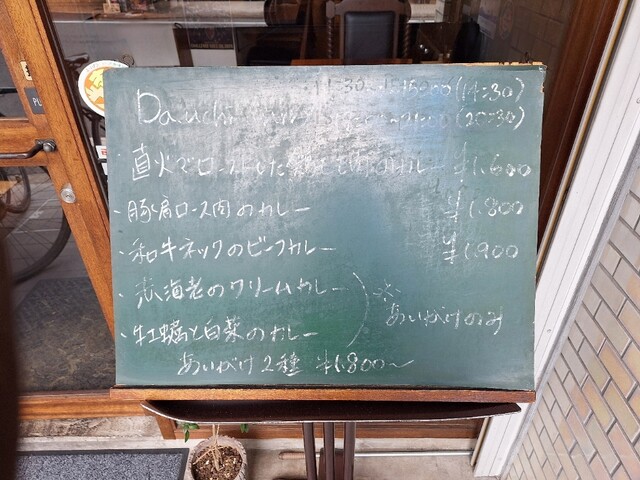 11:30 15:00 (14:30)
Dauchi (20:30)
・直火でローストした カレー ¥1,600
・豚肩ロース肉のカレー ¥1,800
・和牛ネックのビーフカレー ¥1,900
・海老のクリームカレー
※あいがけのみ
・牡蠣と白菜のカレー
あいがけ2種 ¥1,800〜